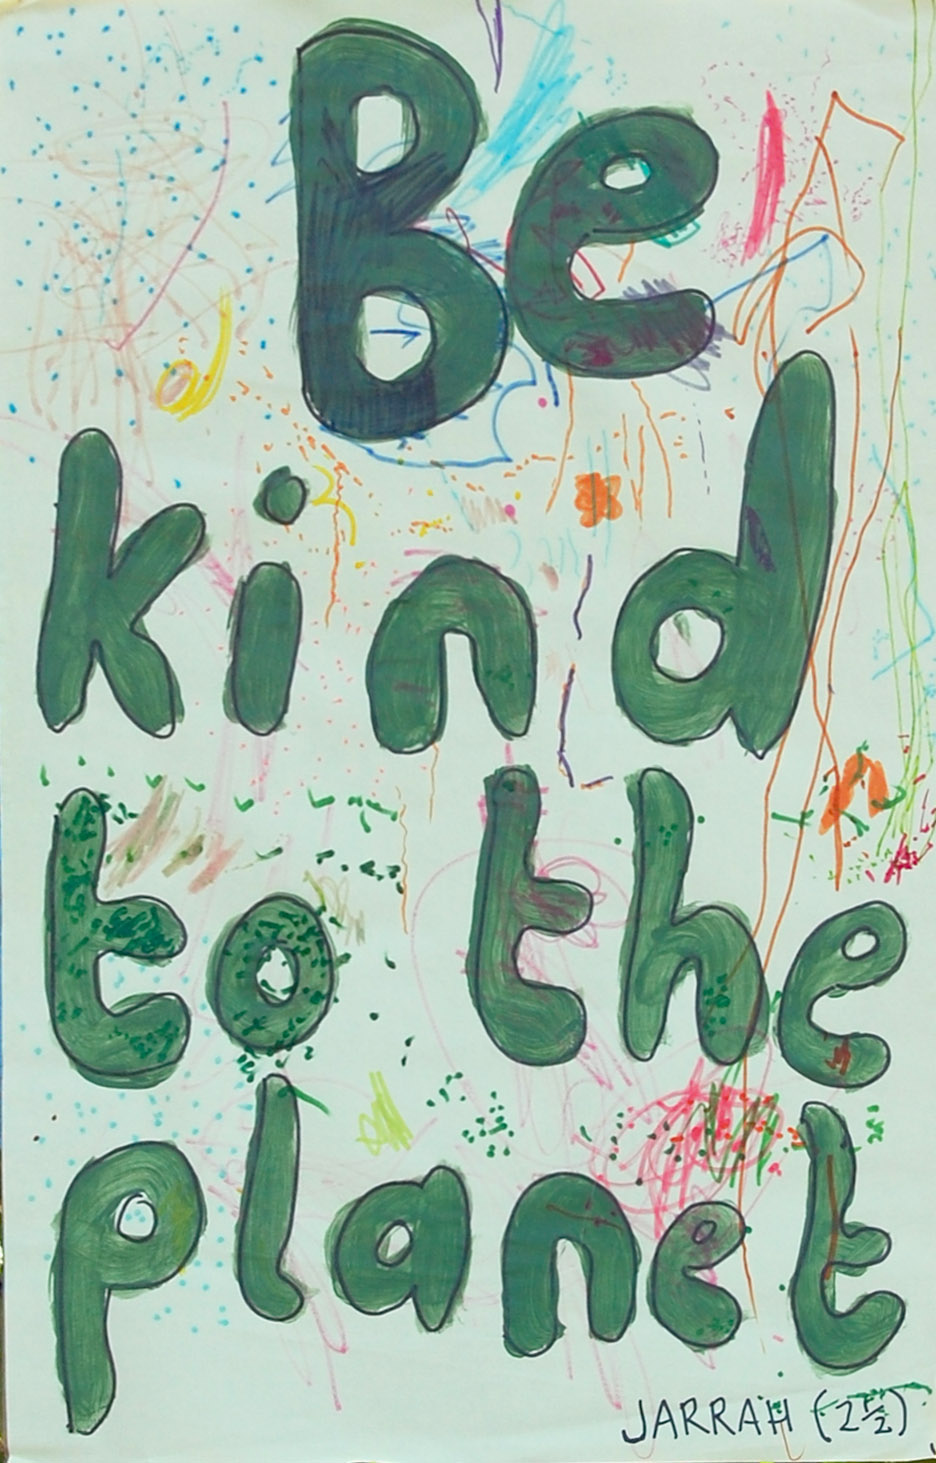 Be
kind
to the
planet
JARRAH (2 1/2)